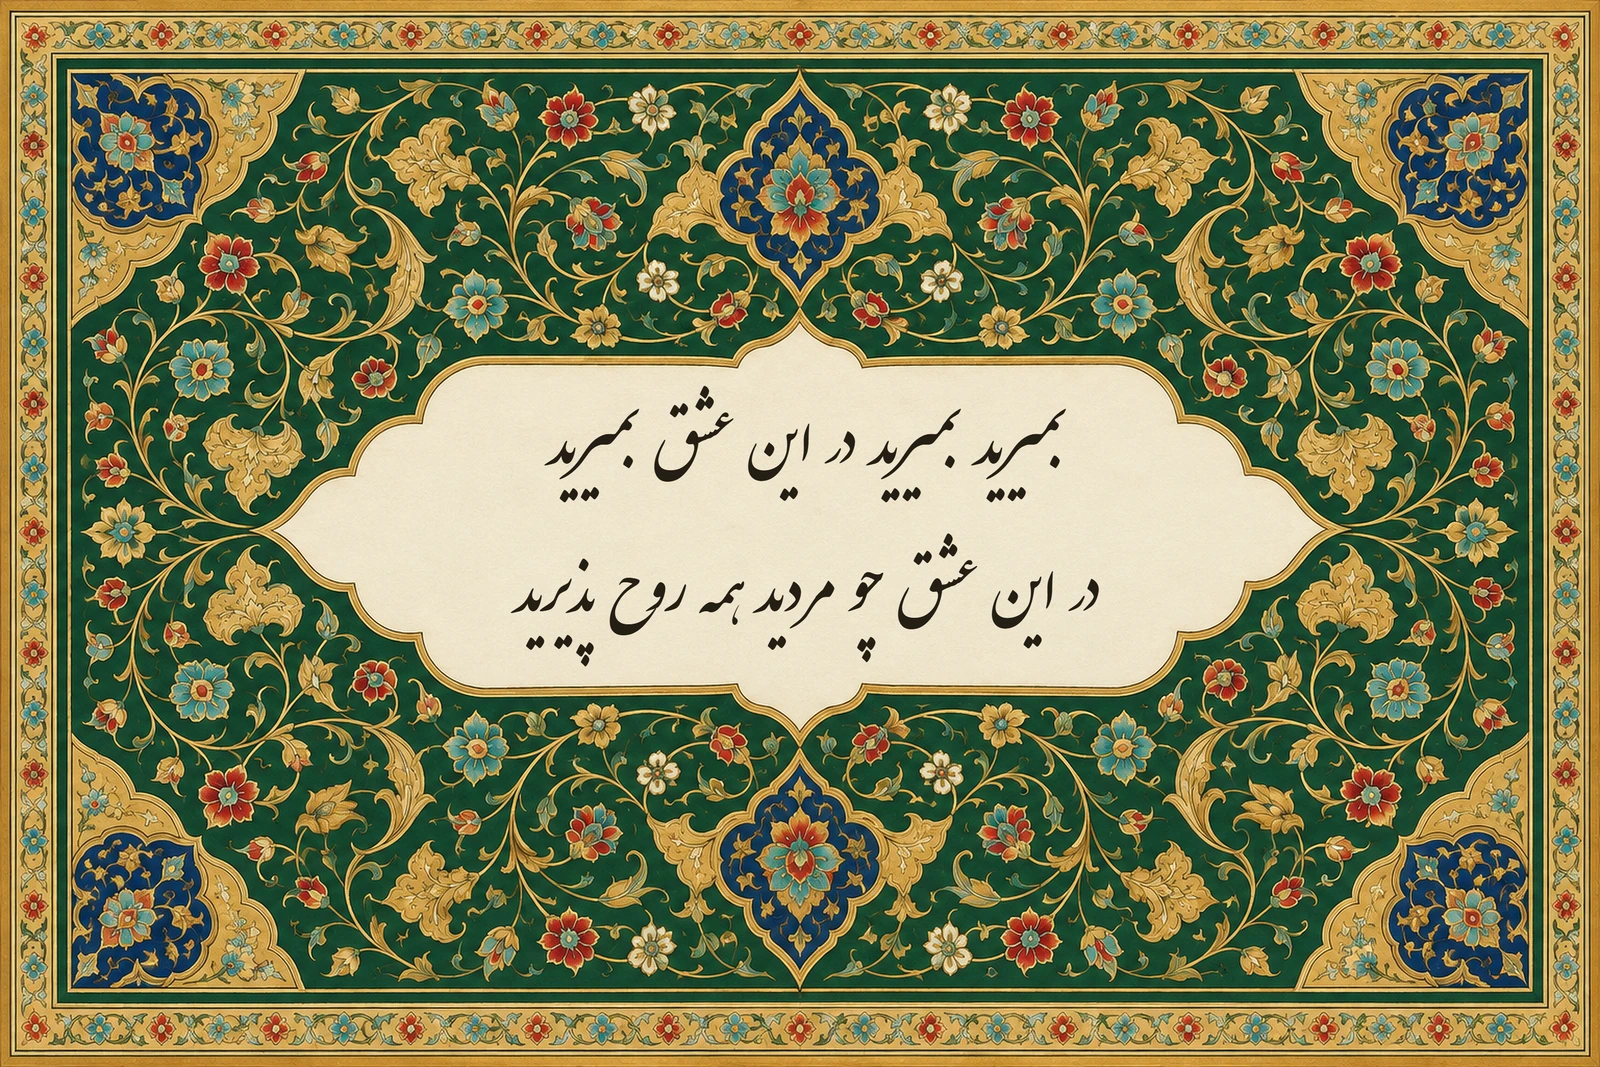 بمیرید بمیرید در این عشق بمیرید
در این عشق چو مردید همه روح پذیرید